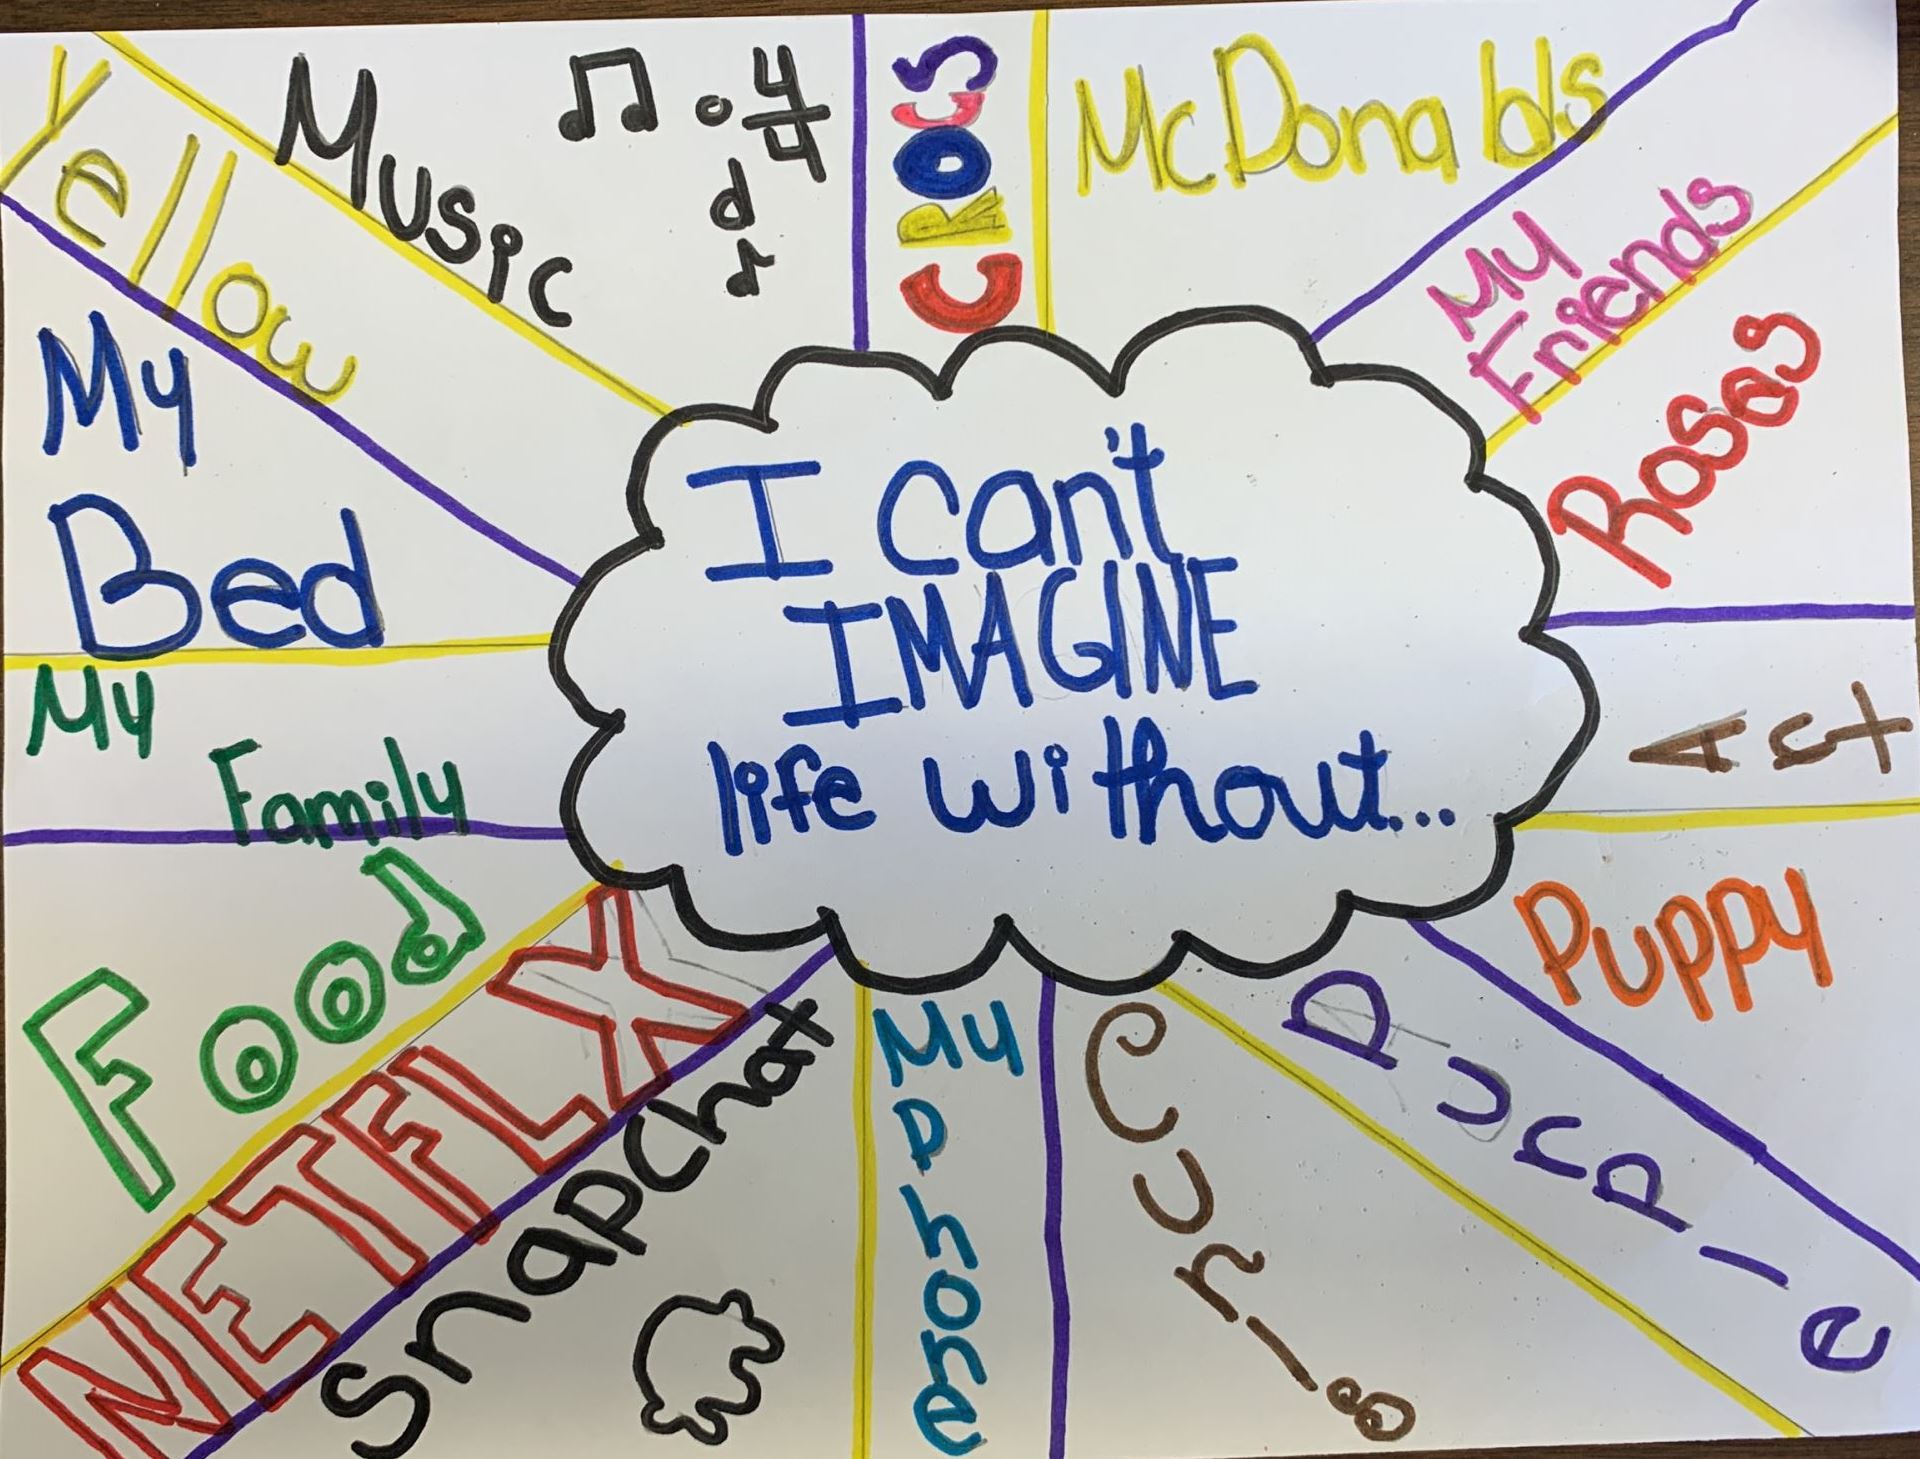 I can't
IMAGINE
life without...
Yellow
Music
4
4
CROCS
McDonalds
My
Friends
Rosas
Art
Puppy
Purple
Curig
My
Phone
Snapchat
NETFLX
Food
My
Family
My
Bed